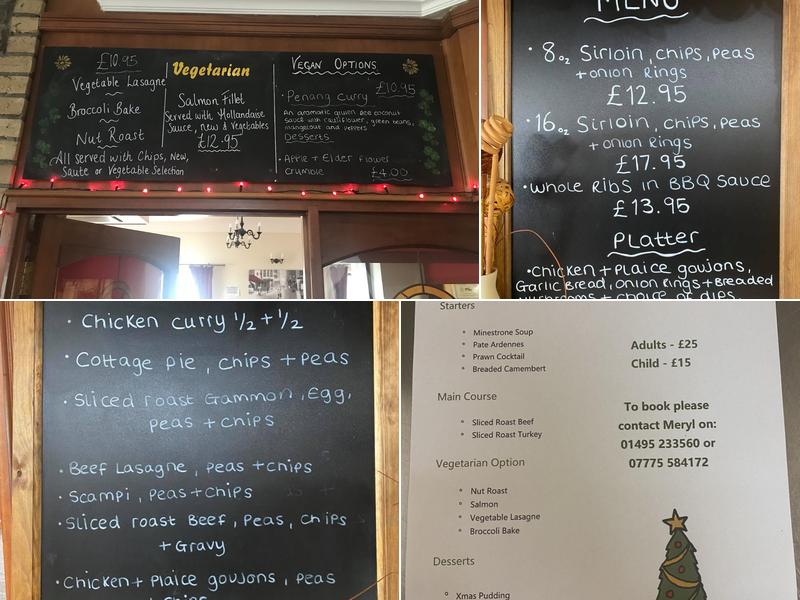 £10.95
Vegetable Lasagne
Broccoli Bake
Nut Roast
All served with Chips, New,
Saute or Vegetable Selection
Vegetarian
Salmon Fillet
Served with Hollandaise
Sauce, new & Vegetables
£12.95
VEGAN OPTIONS
£10.95
Penang curry
An aromatic green pea coconut
sauce with cauliflower, green beans,
mangetout and peppers
Desserts
• Apple + Elder flower
crumble £4.00
MENU
• 8oz Sirloin, chips, peas
+ onion rings
£12.95
• 16oz Sirloin, chips, peas
+ onion rings
£17.95
• whole Ribs in BBQ sauce
£13.95
Platter
• Chicken + Plaice goujons,
Garlic Bread, onion rings + Breaded
mushrooms + choice of dips
• Chicken curry 1/2 + 1/2
• Cottage pie, chips + peas
• Sliced roast Gammon, Egg,
peas + chips
• Beef Lasagne, peas + chips
• Scampi, peas + chips
• Sliced roast Beef, Peas, Chips
+ Gravy
• Chicken + Plaice goujons, peas
+ chips
Starters
Minestrone Soup
Pate Ardennes
Prawn Cocktail
Breaded Camembert
Main Course
Sliced Roast Beef
Sliced Roast Turkey
Vegetarian Option
Nut Roast
Salmon
Vegetable Lasagne
Broccoli Bake
Desserts
Xmas Pudding
Adults - £25
Child - £15
To book please
contact Meryl on:
01495 233560 or
07775 584172